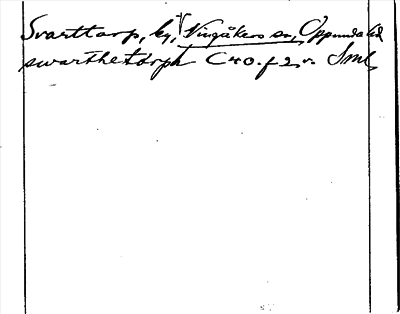 Svarttorp, by, Vingåkers sn, Oppunda hd
swarthetorph C40. f 2 v. Sml